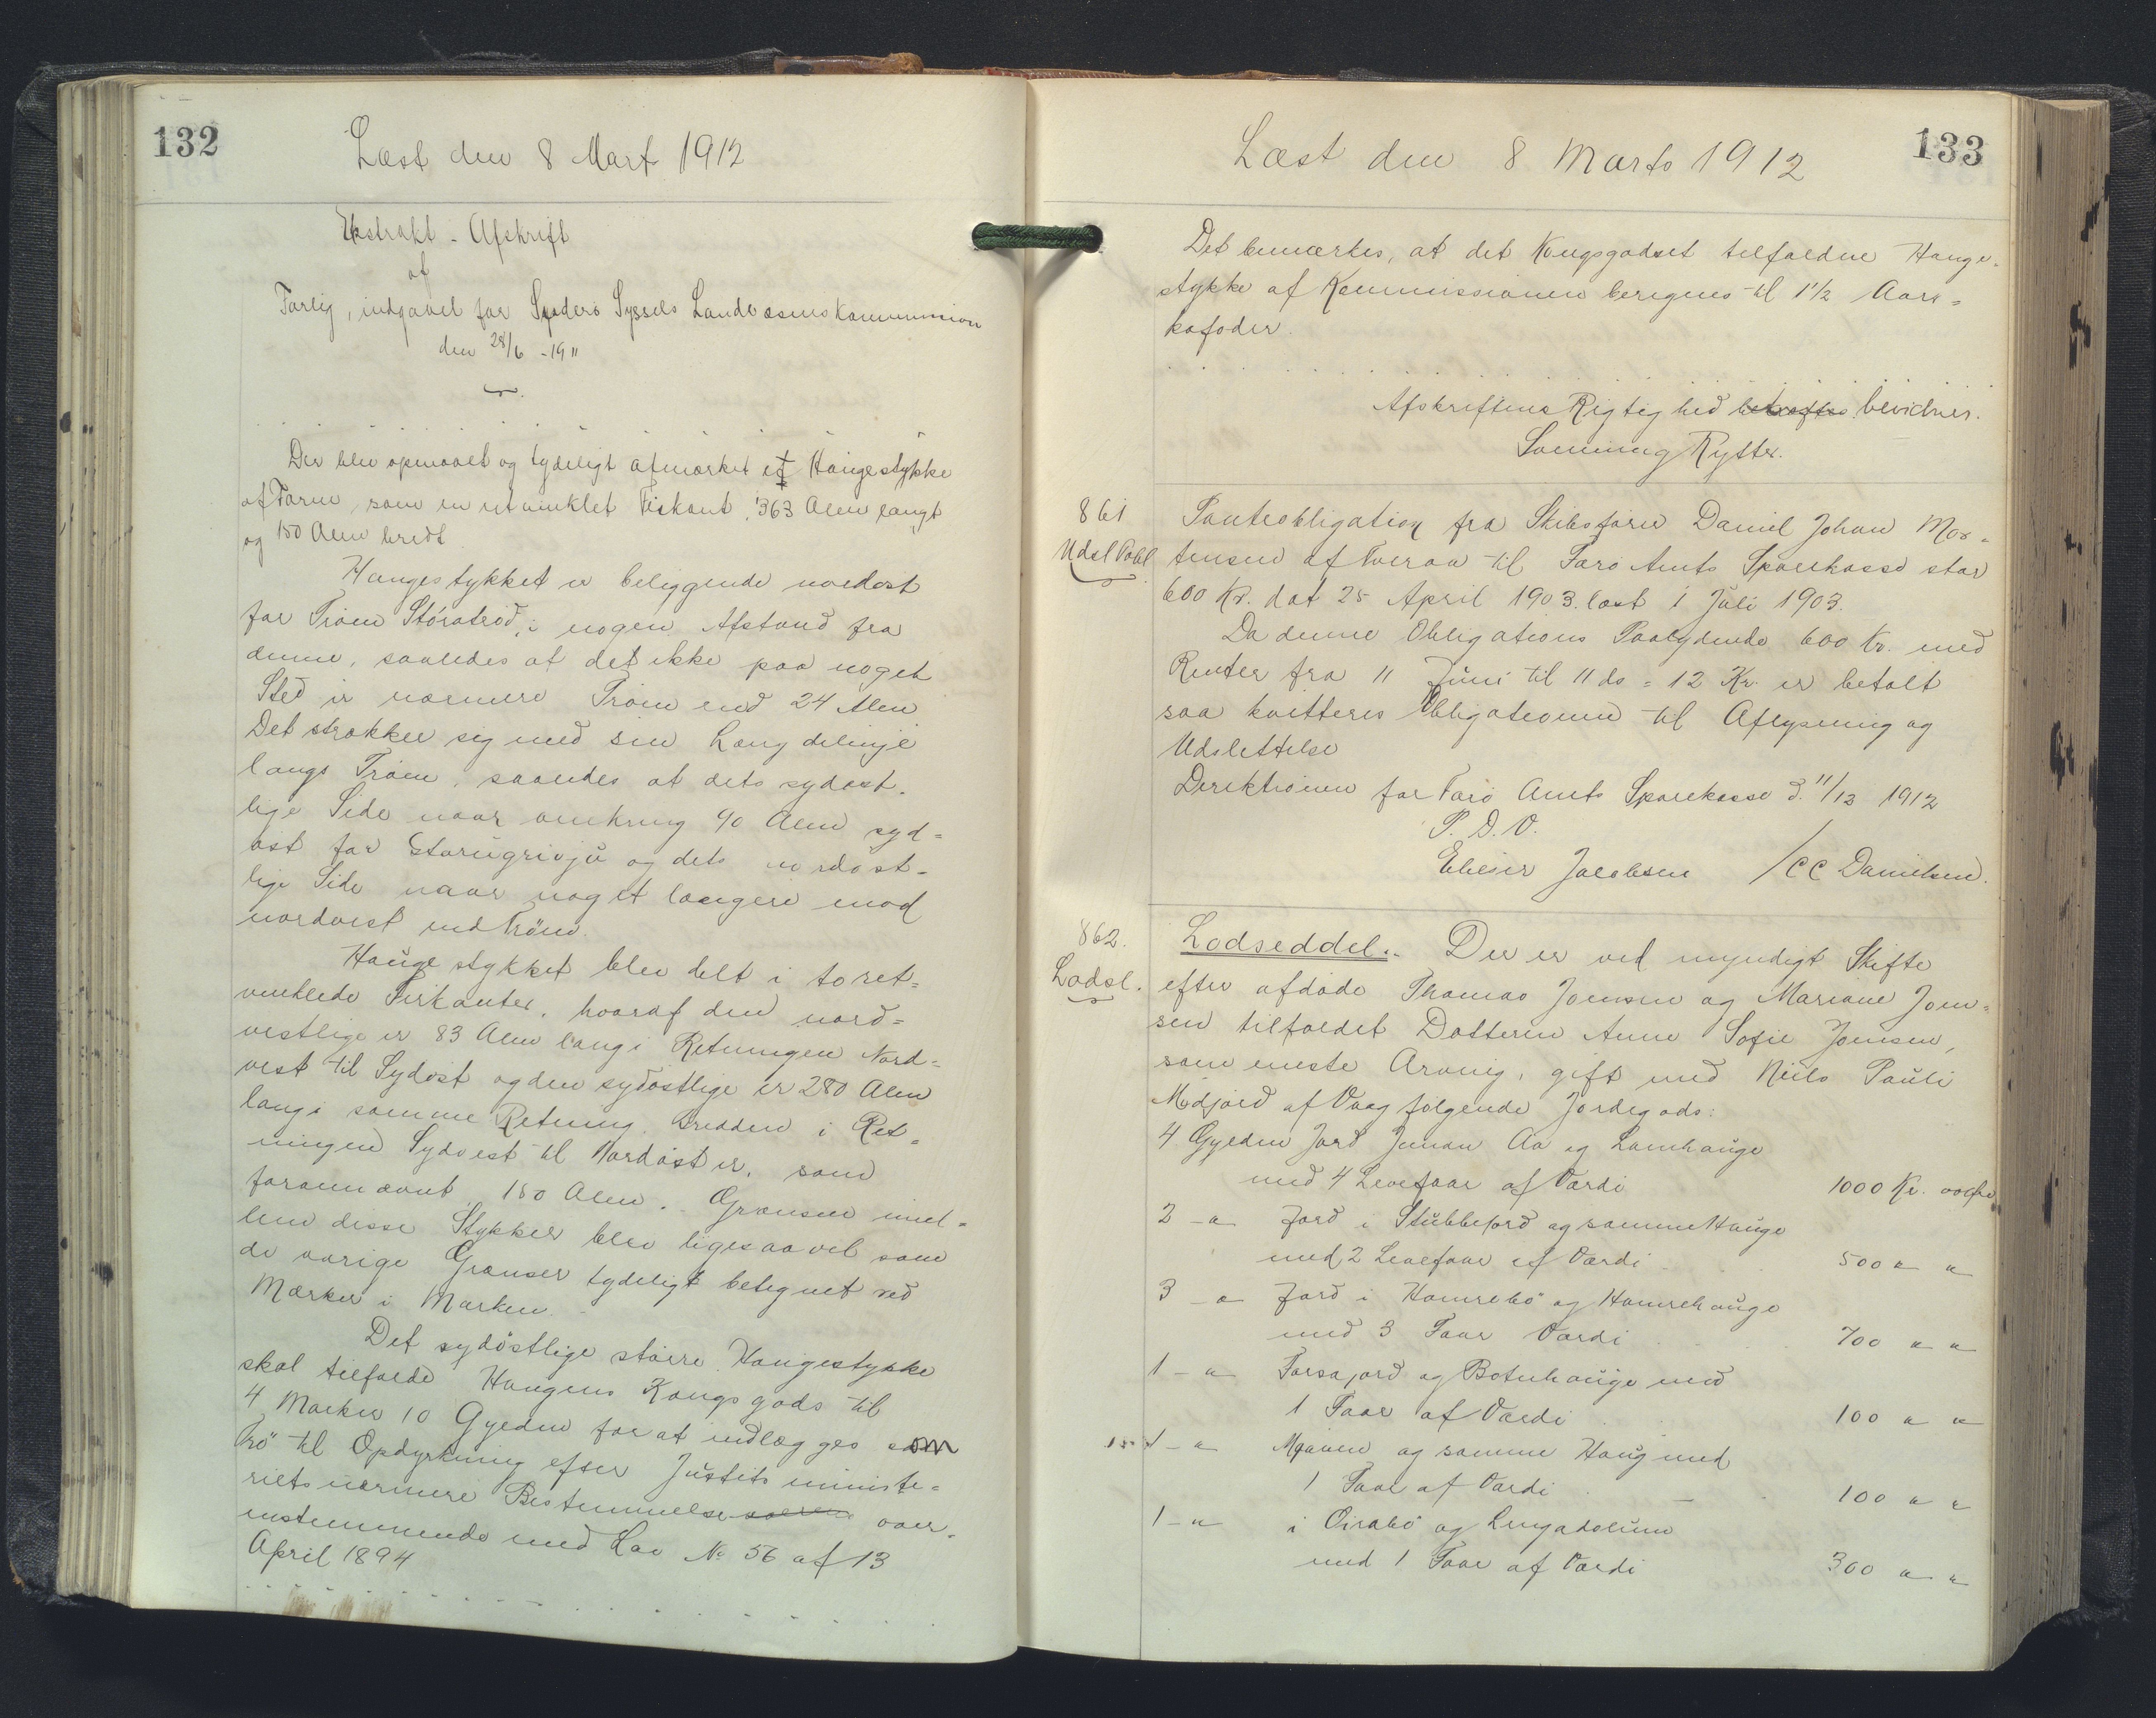 132
Læst den 8 Mart 1912
Ekstrakt-Afskrift
af
Forlig, indgaaet for Syderø Syssels Landvæsenskommission
den 28/6 - 1911
Der blev opmaalt og tydeligt afmærket et Haugestykke
af Form, som en retvinklet Firkant, 363 Alen langt
og 150 Alen bredt
Haugestykket er beliggende nordost
for Trøen Stóratrøð, i nogen Afstand fra
denne, saaledes at det ikke paa noget
Sted er nærmere Trøen end 24 Alen
Det strækker sig med sin Længdelinje
langs Trøen, saaledes at dets sydøst-
lige Side naar omkring 90 Alen syd=
ost for Stórugrivju og dets nordost-
lige Side naar noget længere mod
nordvest end Trøen.
Haugestykket blev delt i to ret=
vinklede Firkanter, hvoraf den nord=
vestlige er 83 Alen lang i Retningen Nord=
vest til Sydøst og den sydøstlige er 280 Alen
lang i samme Retning. Bredden i Ret=
ningen Sydvest til Nordøst er, som
forannævnt, 150 Alen. Grænsen mel=
lem disse Stykker blev ligesaavel som
de øvrige Grænser tydeligt betegnet ved
Mærker i Marken.
Det sydøstlige større Haugestykke
skal tilfalde Haugens Kongsgods til
4 Marker 10 Gylden for at indlægges som
Trö til Opdyrkning efter Justitsministe=
riets nærmere Bestemmelse overens-
enstemmende med Lov No 56 af 13
April 1894
133
Læst den 8 Marts 1912
Det bemærkes, at det Kongsgodset tilfaldne Hauge-
stykke af Kommissionen beregnes til 1 1/2 Aars=
kofoder.
Afskriftens Rigtighed bekræftes bevidner.
Sonning Rytter.
861
Udsl Pobl
Panteobligation fra Skibsfører Daniel Johan Mor=
tensen af Tveraa til Færø Amts Sparekasse stor
600 Kr. dat 25 April 1903. læst 1 Juli 1903.
Da denne Obligations Paalydende 600 Kr. med
Renter fra 11 Juni til 11 ds = 12 Kr. er betalt
saa kvitteres Obligationen til Aflysning og
Udslettelse
Direktionen for Færø Amts Sparekasse d. 11/12 1912
P. D. V.
Elieser Jacobsen / CC Danielsen.
862.
Lodsl.
Lodseddel. Der er ved myndigt Skifte
efter afdøde Thomas Joensen og Mariane Joen=
sen tilfaldet Datteren Anne Sofie Joensen,
som eneste Arving, gift med Niels Pauli
Midjord af Vaag følgende Jordegods:
4 Gylden Jord Innan Aa og Lomhauge
med 4 Levefaar af Værdi 1000 Kr. 00 Øre
2 - " Jord i Stubbejord og samme Hauge
med 2 Levefaar af Værdi 500 " "
3 - " Jord i Hamrebö og Hamrehauge
med 3 Faar Værdi 700 " "
1 - " Forsajord og Botnhauge med
1 Faar af Værdi 100 " "
1 - " og samme Haug med
1 Faar af Værdi 100 " "
1 - " i Oirabö og
med 1 Faar af Værdi 300 " "